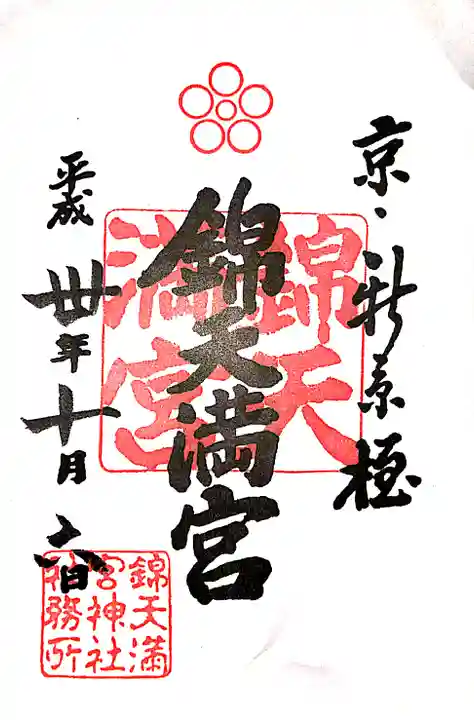 京・新京極
錦天満宮
錦天
満宮
平成卅年十月六日
錦天満
宮神社
社務所